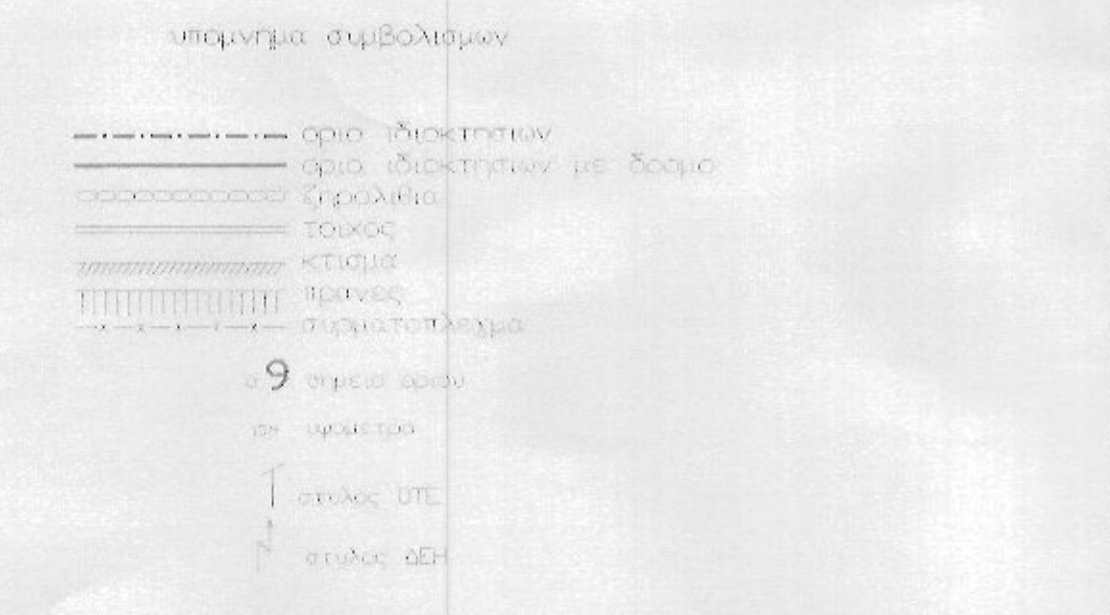 υπομνημα συμβολισμων
οριο ιδιοκτησιων
οριο ιδιοκτησιων με δρομο
ξηρολιθια
τοιχος
κτισμα
πρανες
συρματοπλεγμα
9 σημειο οριου
υψομετρα
στυλος ΟΤΕ
στυλος ΔΕΗ